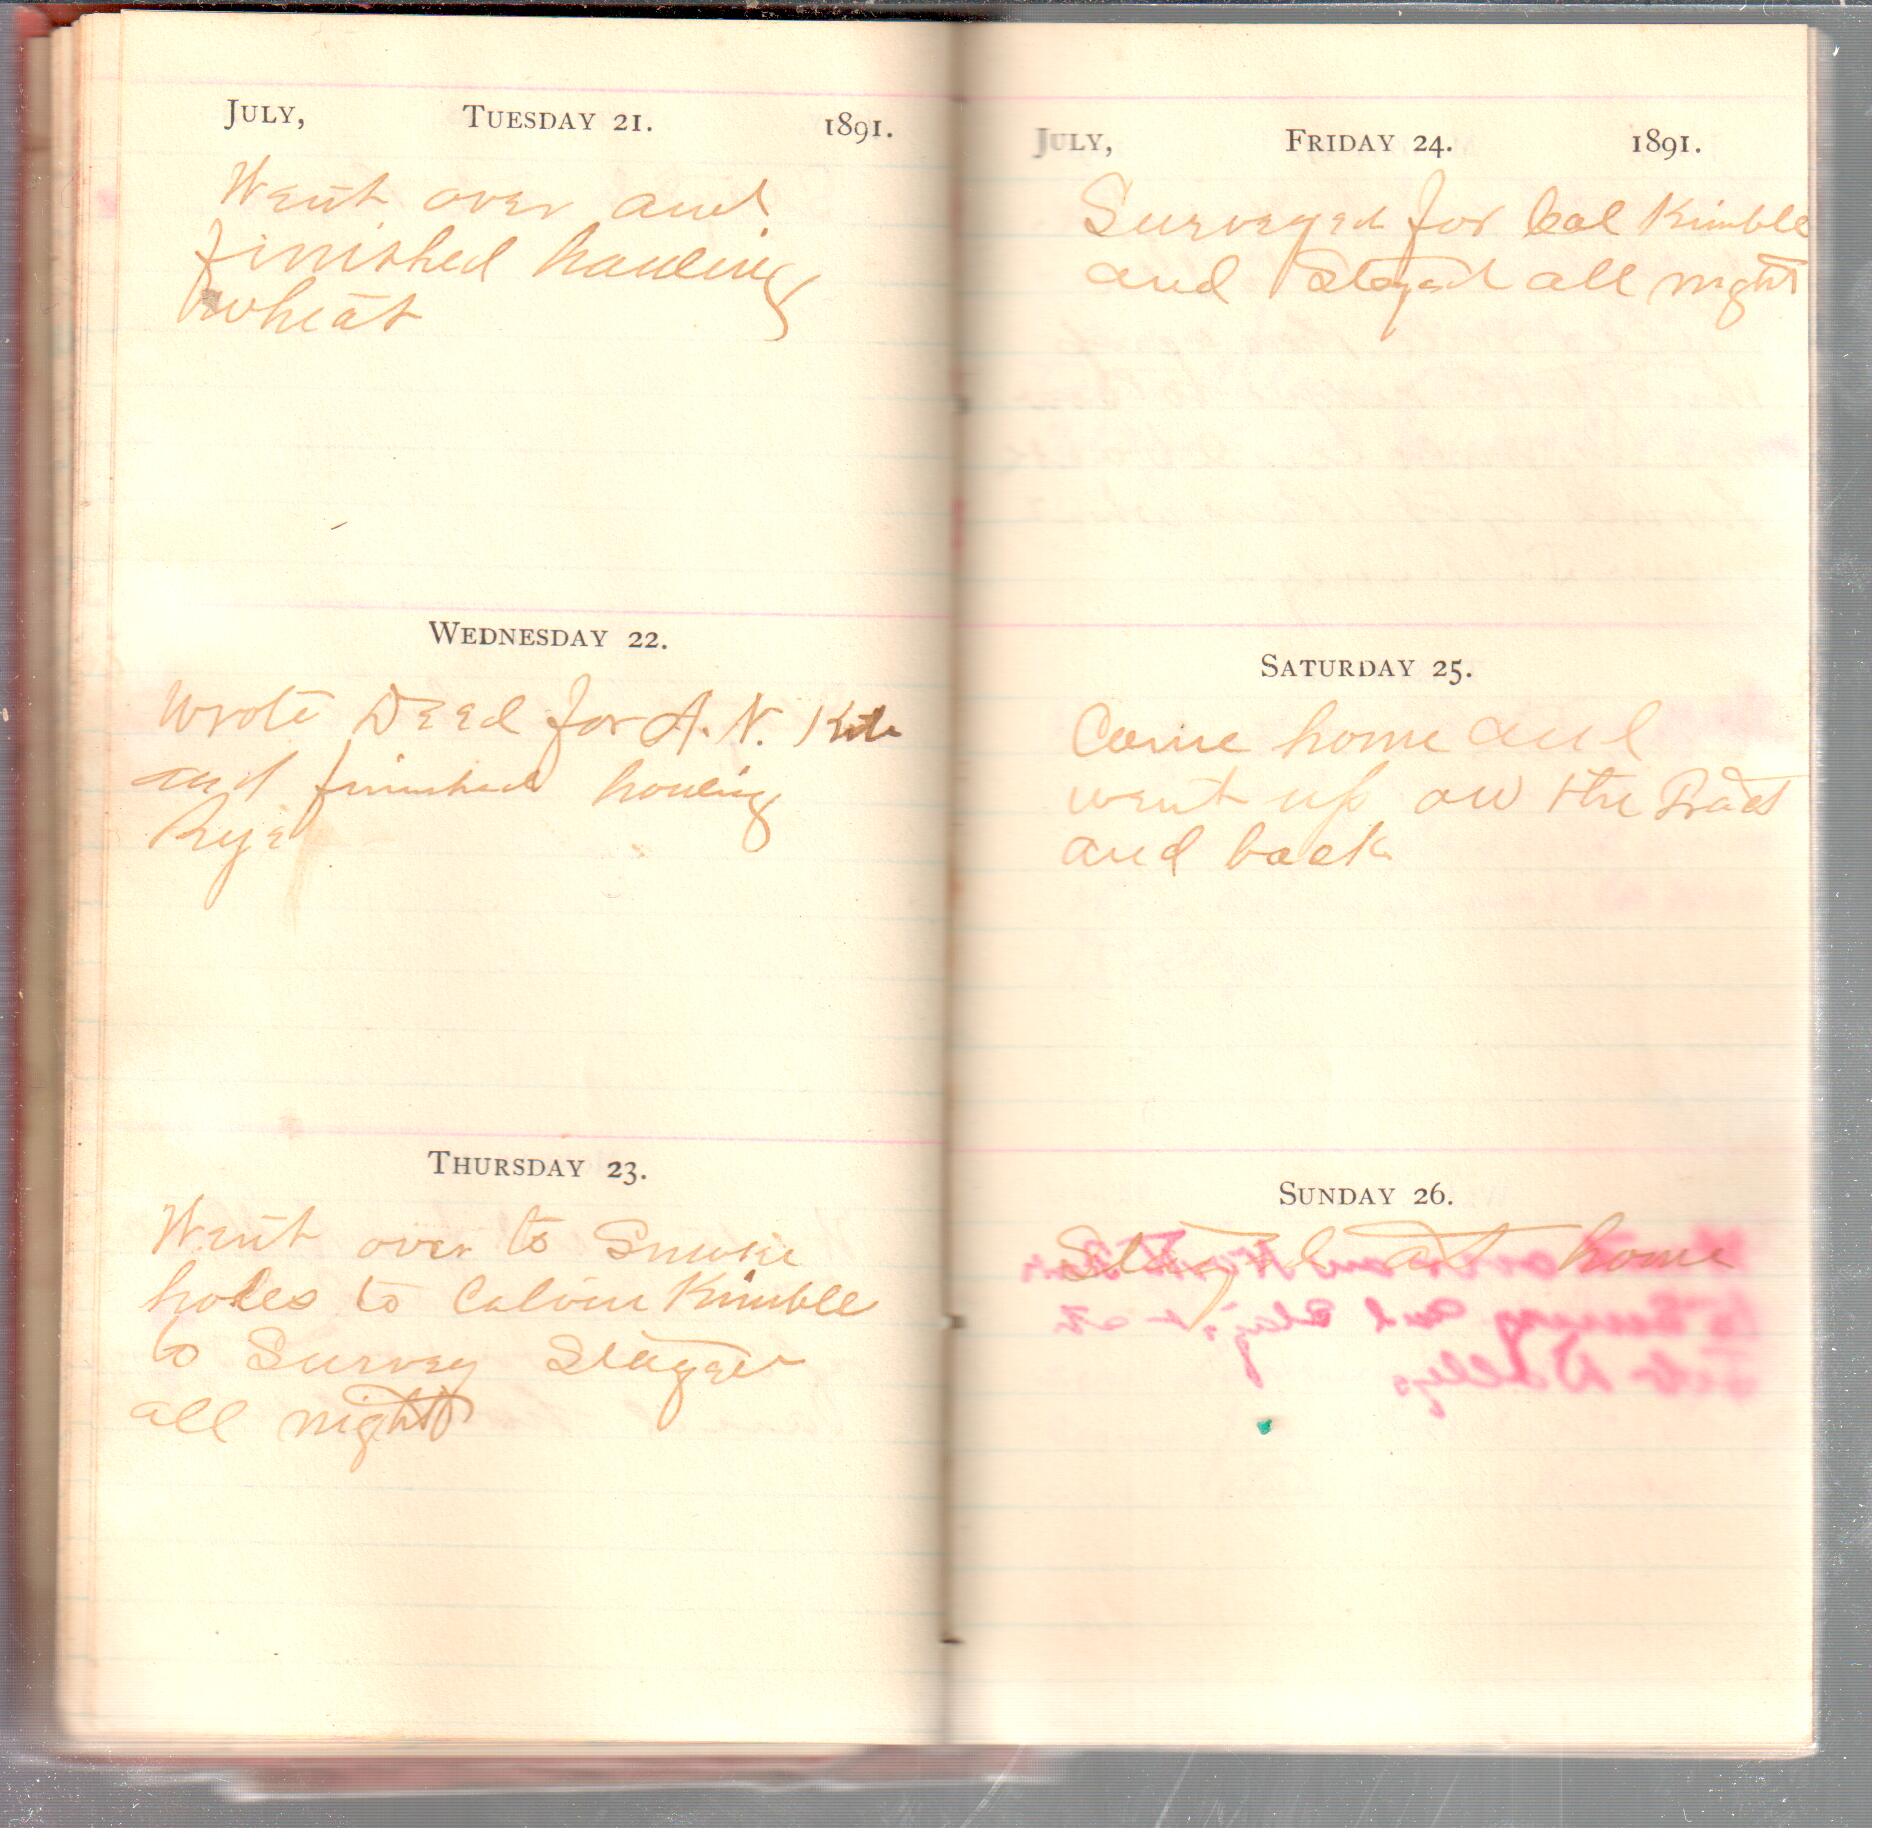 JULY, TUESDAY 21. 1891.
Went over and
finished hauling
wheat
WEDNESDAY 22.
Wrote Deed for A. N.
and finished houling
Rye
THURSDAY 23.
Went over to Smoke
holes to Calvin Kimble
to Survey Stayed
all night
JULY, FRIDAY 24. 1891.
Surveyed for Cal Kimble
and Stayed all night
SATURDAY 25.
Came home and
went up on the
and back
SUNDAY 26.
Stayed at home